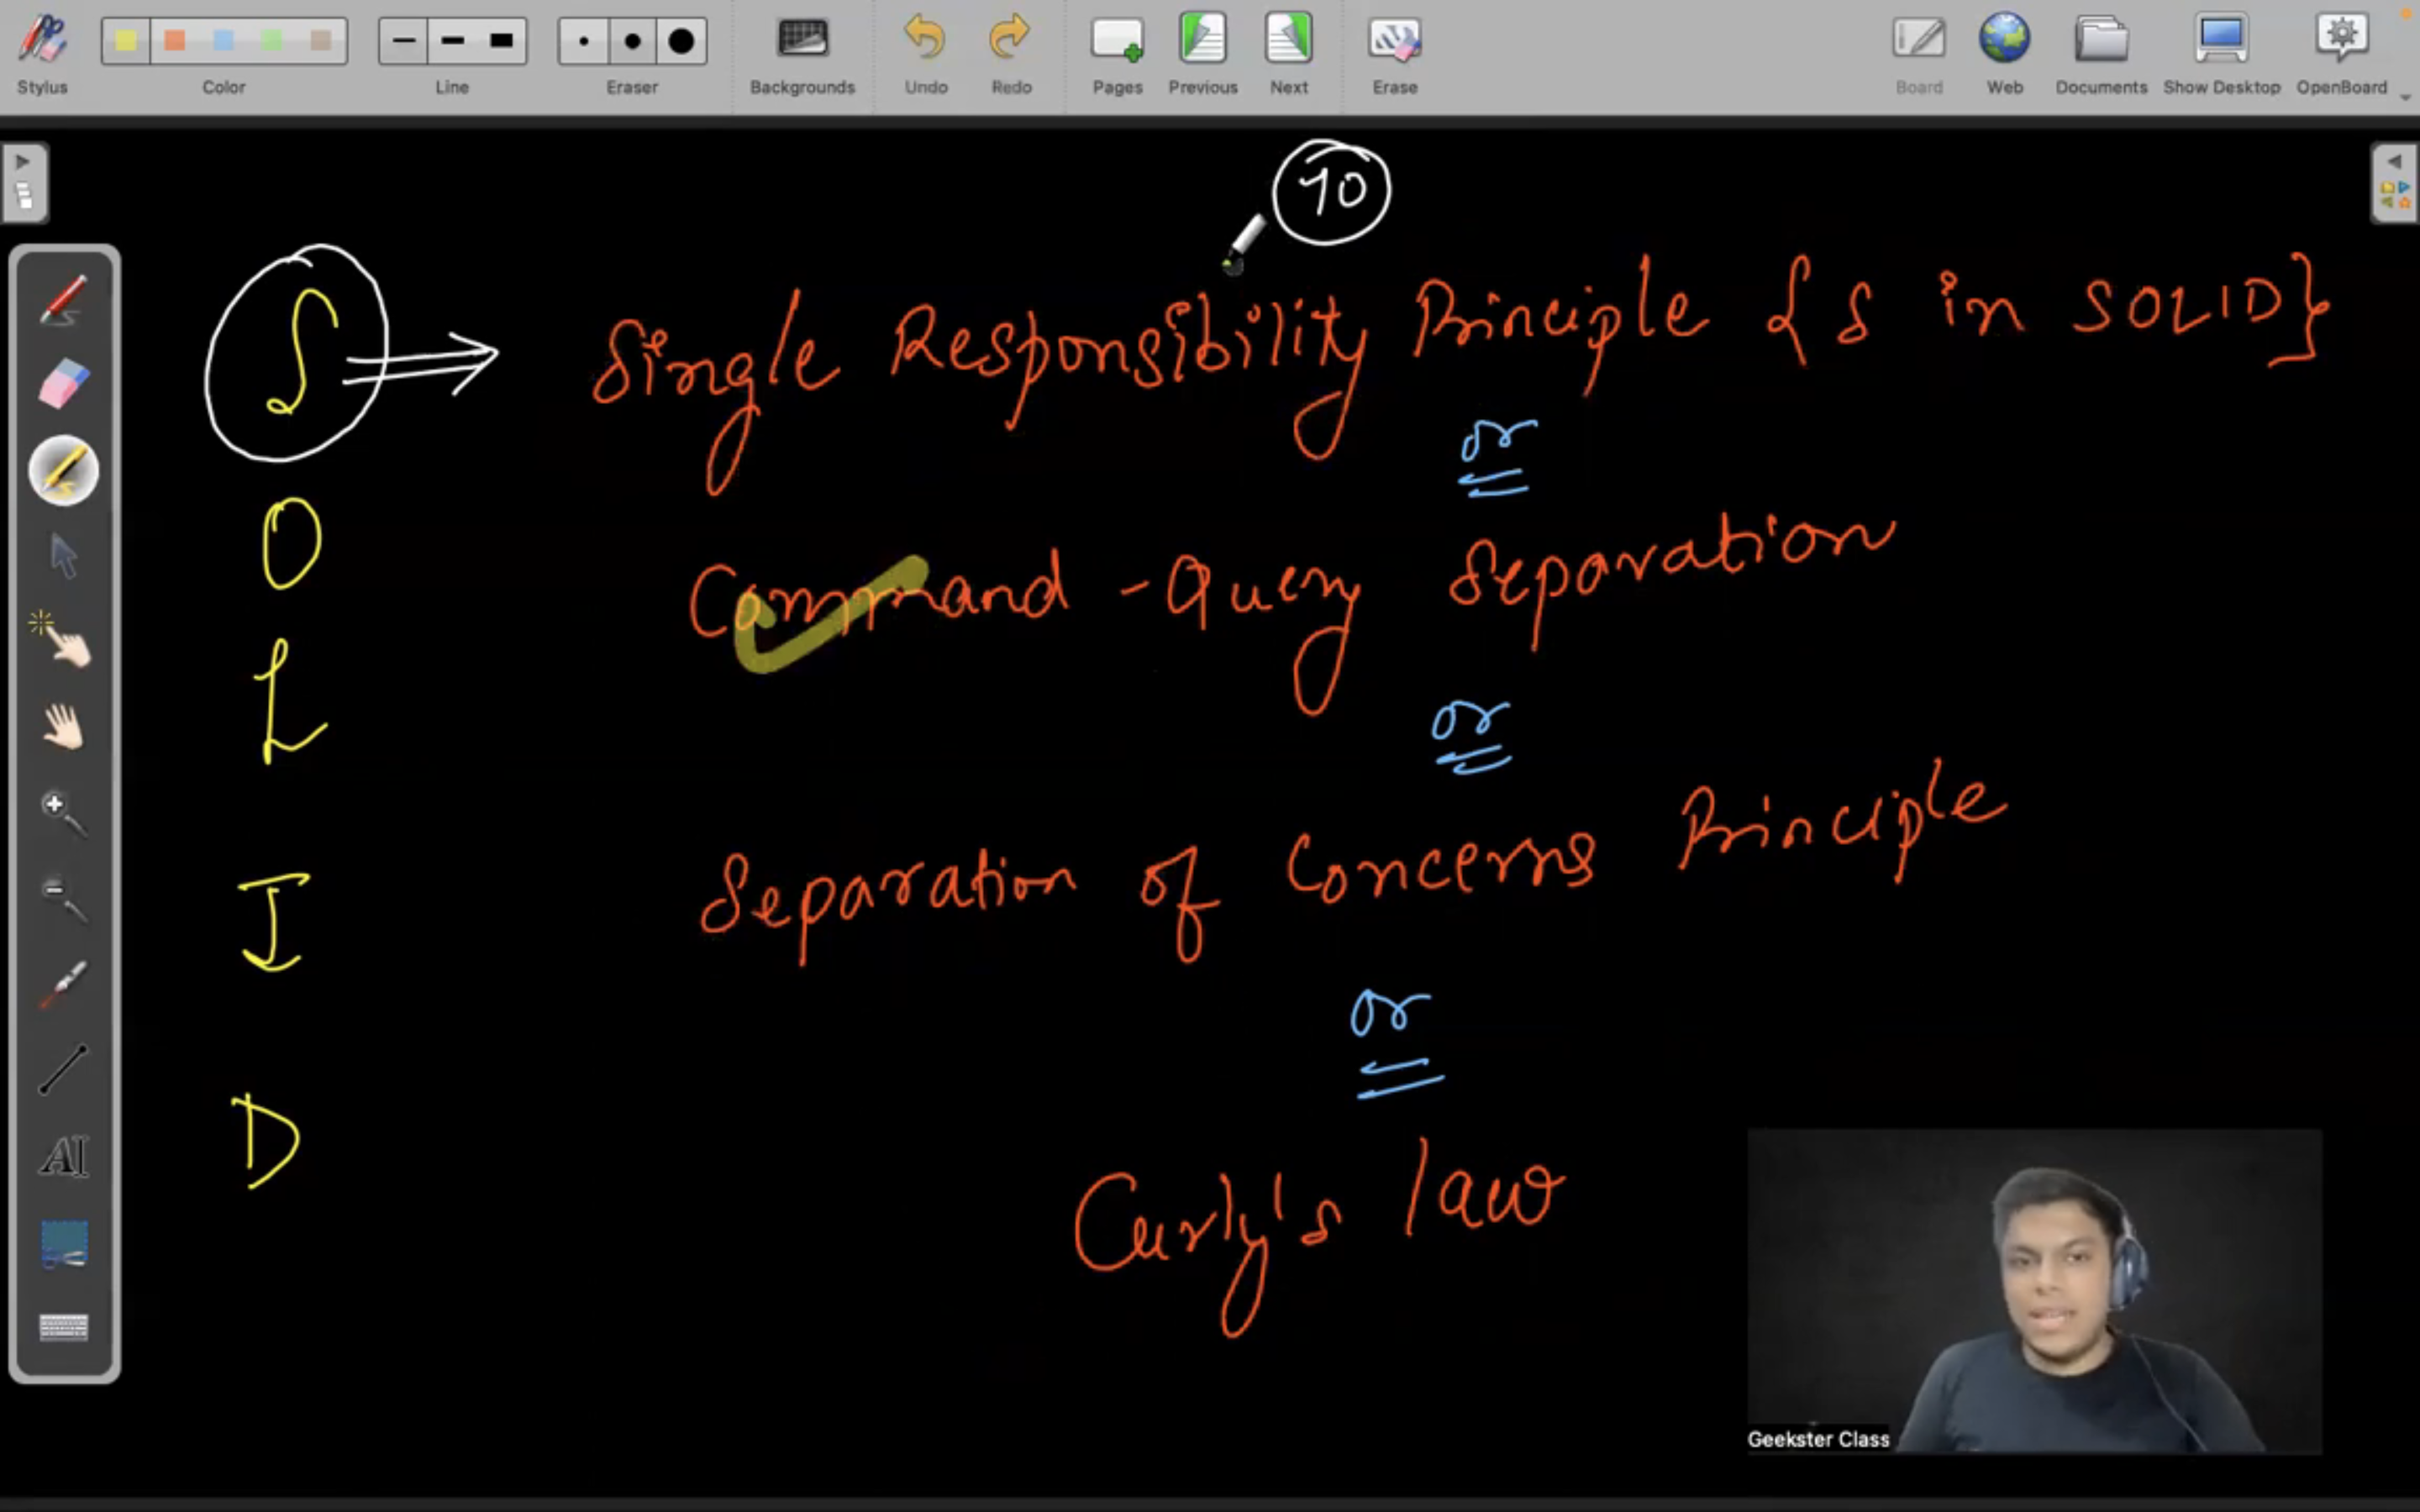 Stylus Color Line Eraser Backgrounds Undo Redo Pages Previous Next Erase Board Web Documents Show Desktop OpenBoard
10
S ⇒ Single Responsibility Principle {S in SOLID}
or
O
Command - Query Separation
L
or
Separation of Concerns Principle
I
or
D
Curly's law
AI
Geekster Class